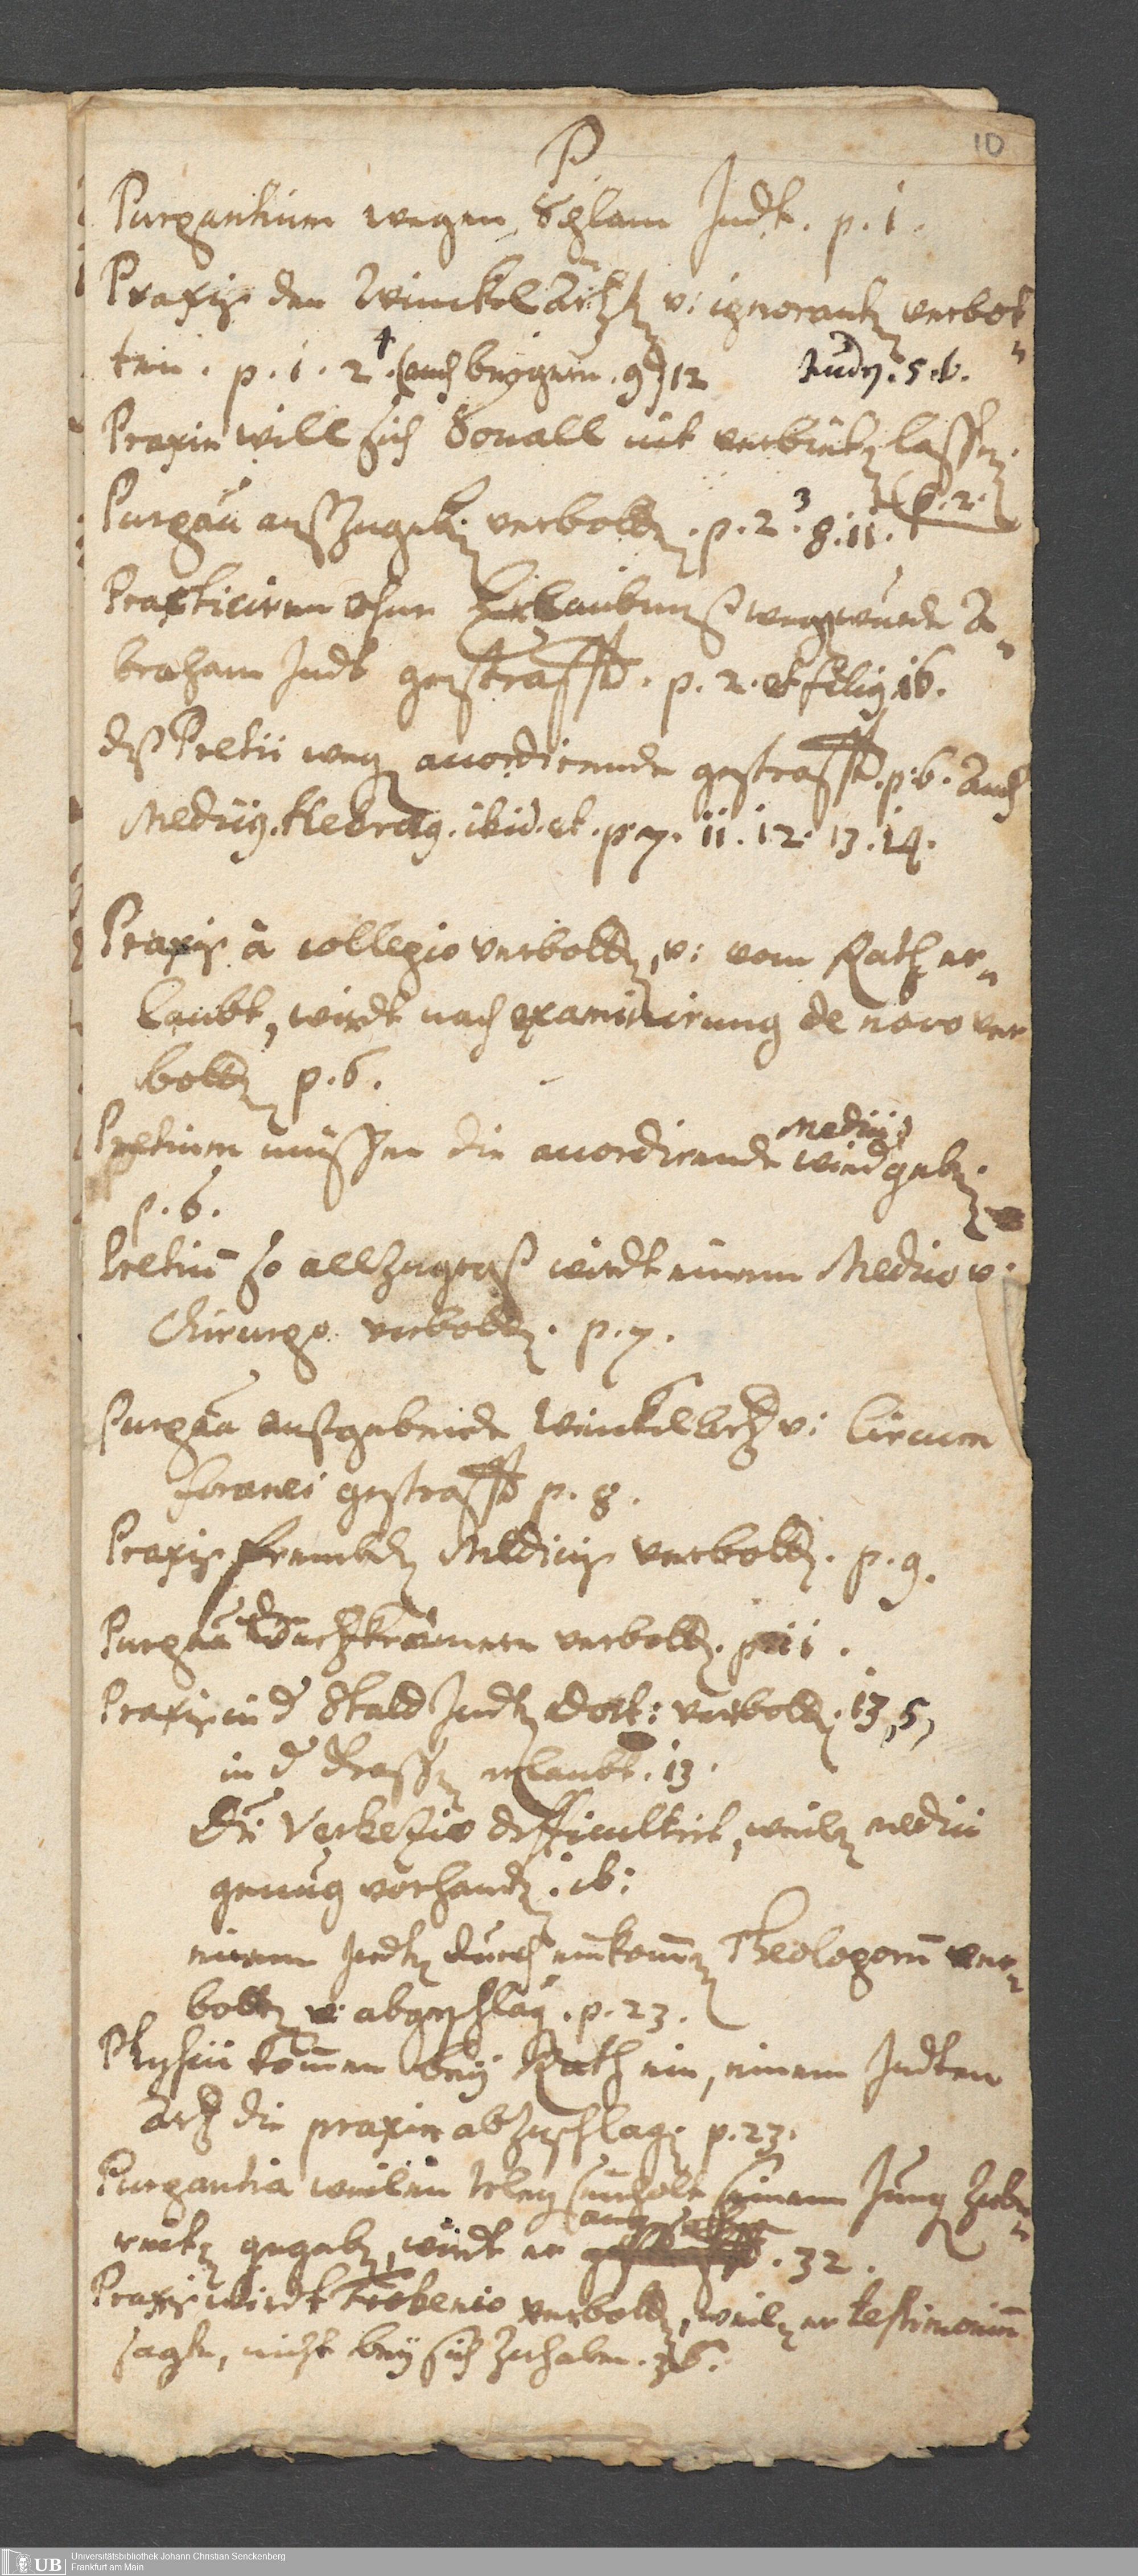 10
P
Purgantium wegen Schlam Judt. p. 1.
Praxis den Winckelärtzt v: ignorantz verbot
ten. p. 1. 2. 4 (auch beygrn. 9) 12 Judn. 5. 6.
Praxin will sich Sonall nit verbietn lassn.
(p. 2.
Purgan außzugebn verbottn. p. 2. 3 8. 11.
Practiciren ohne Erlaubnuß wegn wurde A
braham Judt gestrafft. p. 2. et filius 16.
deß Pretii wegn accordirende gestrafft. p. 6. Auch
Medicus Hebræus. ibid. et. p. 7. 11. 12. 13. 14.
Praxis à collegio verbottn, v: vom Rath er
laubt, wirdt nach examinirung de novo ver
bottn p. 6.
Medicis
Pretium müssen die accordirende wied gebn.
p. 6.
Pretiu so allzugroß wirdt einem Medico v.
Chirurgo verbottn. p. 7.
Purgan außgebende Winckelärtzt v: Circum
foranei gestrafft p. 8.
Praxis frembdn Medicis verbottn. p. 9.
Purgan verbottn. p. 11.
Praxis in d Stadt Judn Doct: verbottn. 13, 5,
in d Gassn erlaubt. 13.
difficultirt, weiln medici
genug vorhandn. ib:
einem Judn durch einkomn Theologoru ver
bottn v: abgeschlagn. p. 23.
Physici komen bey Rath ein, einem Judten
Artzt die praxin abzuschlagn p. 23.
Purgantia weiln seinem Jung
gegebn, wirdt er . 32.
Praxis wirdt Frobenio verbottn, weiln er testimoniu
sagte, nicht bey sich zuhaben. 36.
UB
Universitätsbibliothek Johann Christian Senckenberg
Frankfurt am Main